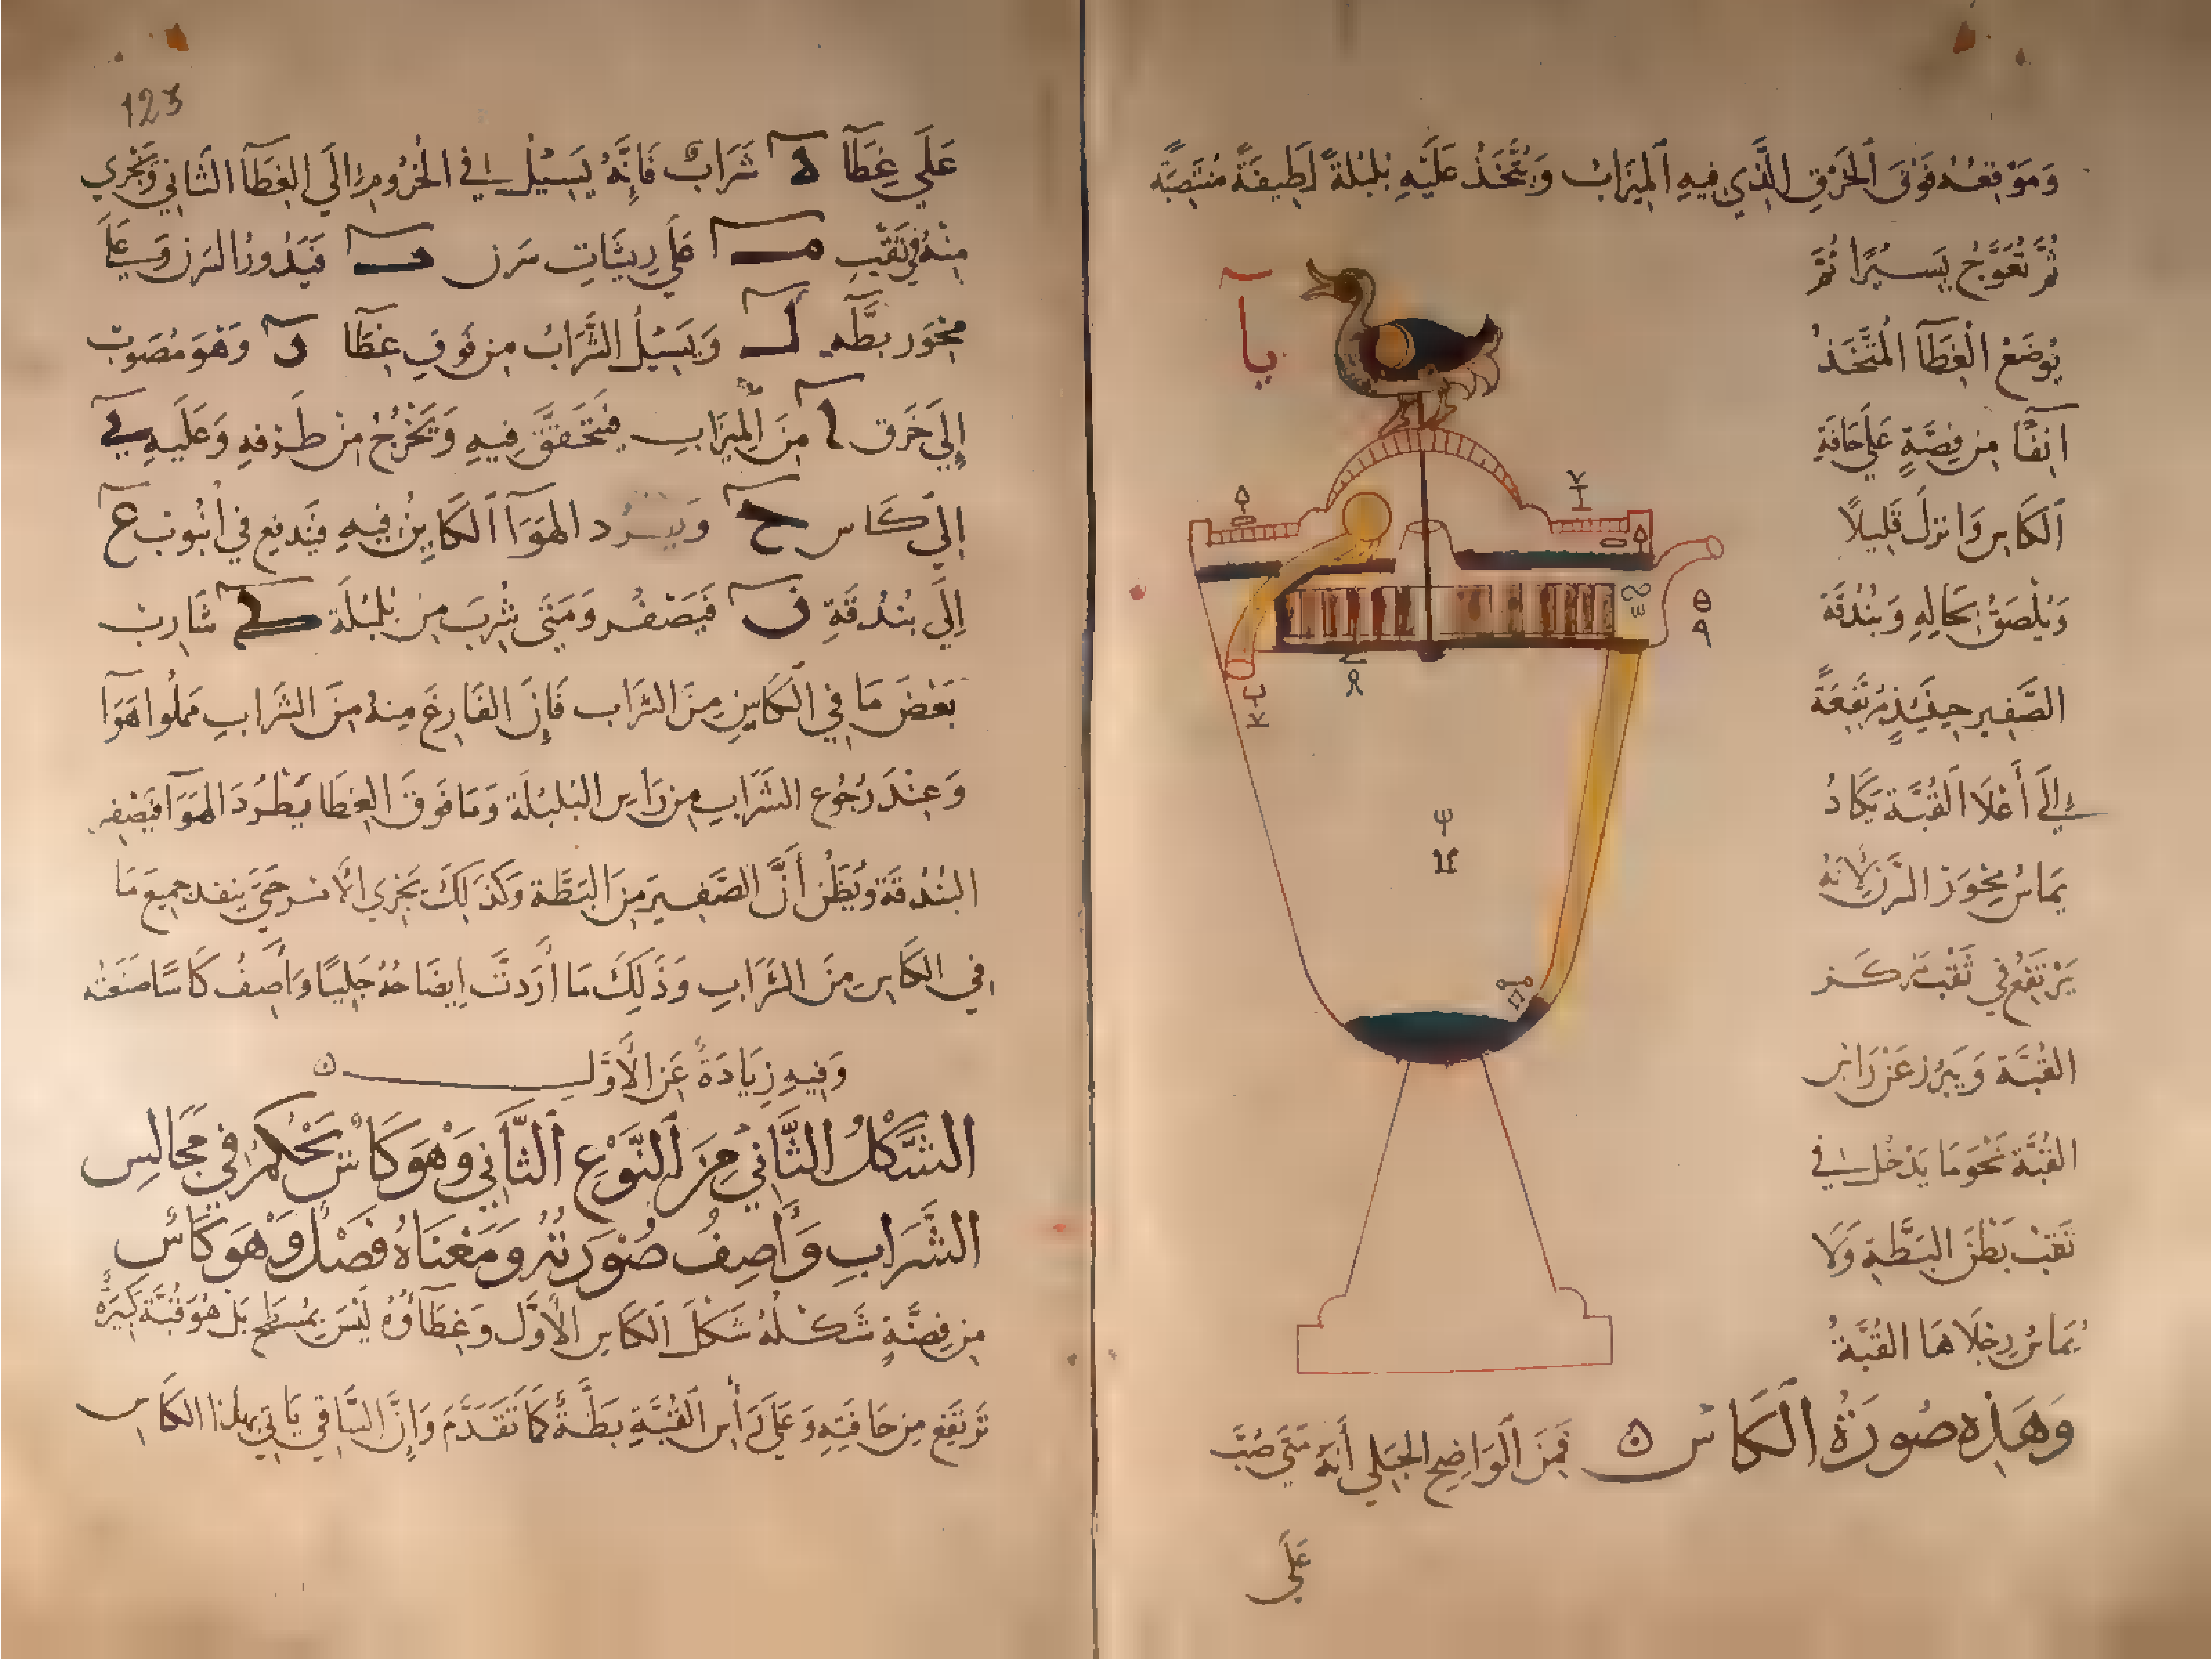 وَمَوْقِعُهُ فَوْقَ الخَرْقِ الَّذِي فِيهِ المِيزَابُ وَيُتَّخَذُ عَلَيْهِ بُلبُلةً لَطِيفَةً مُنتَصِبَةً
ثُمَّ تُعَوَّجُ يَسِيرًا ثُمَّ
يُوضَعُ الْغِطَآ المُتَّخَذُ
آنِفًا مِن فِضَّةٍ عَلَى حَافَةِ
الكَاسِ وَانزلَ قَلِيلًا
وَيُلْصَقُ بِحَالِهِ وَبُندُقَةُ
الصَّفِيرِ حِينَئِذٍ مُرْتَفِعَةً
إِلَى أَعْلَا القُبَّة يَكَادُ
يمَاسُ مِحْوَر السَّرنِ لِأَنَّهُ
يَرْتَفِعُ فِي ثَقْبِ مَركَز
القُبَّة وَيَبرُز عَنْ رَاسِ
القُبَّة نَحْوَ مَا يَدْخُل فِي
ثَقبْ بَطْنَ البَطَّةِ وَلَا
يُمَاسُ رِجْلَاهَا القُبَّةُ
وَهَذِهِ صُورَةُ الكَاسِ ۞ فَمِنَ الْوَاضِحِ الجَلِي أَنَّهُ مَتَى صُبَّ
عَلَى
يآ
123
عَلَى غِطَآ هـ شَرَابٌ فَإِنَّهُ يَسِيْلُ فِي الخُرُومِ إِلَى الغِطَآ الثَاني وَيَجْرِي
مِنْهُ فِي ثَقْبِ مـ عَلَى رِيشَاتِ سَرن ف فَيَدُورُ السَرن وَ عَلَى
مِحْوَر بَطَّه ل وَيَسِيْلُ الشَّرَابُ مِن فَوقِ غِطَآ ن وَهْوَ مُصَوبْ
إِلَى خَرَق مِنَ المِيزَابِ فَيَتَحَقَّقَ فِيهِ وَيَخْرُجُ مِنْ طَرَفِهِ وَعَلَيهِ ي
إِلَى كَاس ح وَ الهَوَآ الكَايِنُ فِيهِ فَيَندفِع فِي أُنْبُوب ع
إِلَى بُنْدُقَةِ ف فَيَصْفُر وَمَتَى شُرِبَ مِن بُلْبُلَة ك شَارِبْ
بَعْضَ مَا فِي الْكَاسِ مِنَ الشَراب فَإِن الفَارِغَ مِنهُ مِنَ الشَرَابِ مَملُوا هَوَآ
وَعِنْدَ رُجُوعِ الشَّرَابِ مِن رَأسِ البُلبُلَة وَمَا فَوقَ الغِطَا يَطْرُدَ الهَوَآ فَيصْفِر
البُندُقَة ويُظَن أَنَّ الصَّفِيرَ مِنَ البَطَّة وَكَذَلِكَ يَجْرِي الأَمر حَتَى ينفد جميعَ مَا
فِي الكَاسِ مِنَ الشَّرَابِ وَذَلِكَ مَا أَرَدتَّ إِيضَاحُهُ جَلِيًا وَأَصِفُ كَاسًا صَنعَتُه
وَفِيهِ زِيَادَةٌ عَنِ الْأَوَّلِ ۞
الشَّكْلُ الثَّانِي مِنَ النَّوْعِ الثَّانِي وَهْوَ كَاسٌ يَحْكُمُ فِي مَجَالِسِ
الشَّرَابِ وَأَصِفُ صُورَتُهُ وَمَعْنَاهُ فَصْلٌ وَهْوَ كَاسٌ
مِن فِضَّةٍ شَكْلُهُ شَكْلَ الكَاسِ الأَوَّل وَغِطَآؤُهُ لَيْسَ بِمُسَطَّحٍ بَل هُوَ قُبَّة كَبِيرَةٌ
تَرْتَفِع مِن حَافَتِهِ وَعَلَى رَأسِ القُبَّةِ بَطَّةٌ كَمَا تَقَدَّمَ وَإِنَّ السَّاقِي يَأتِي بِهَذَا الكَاسِ